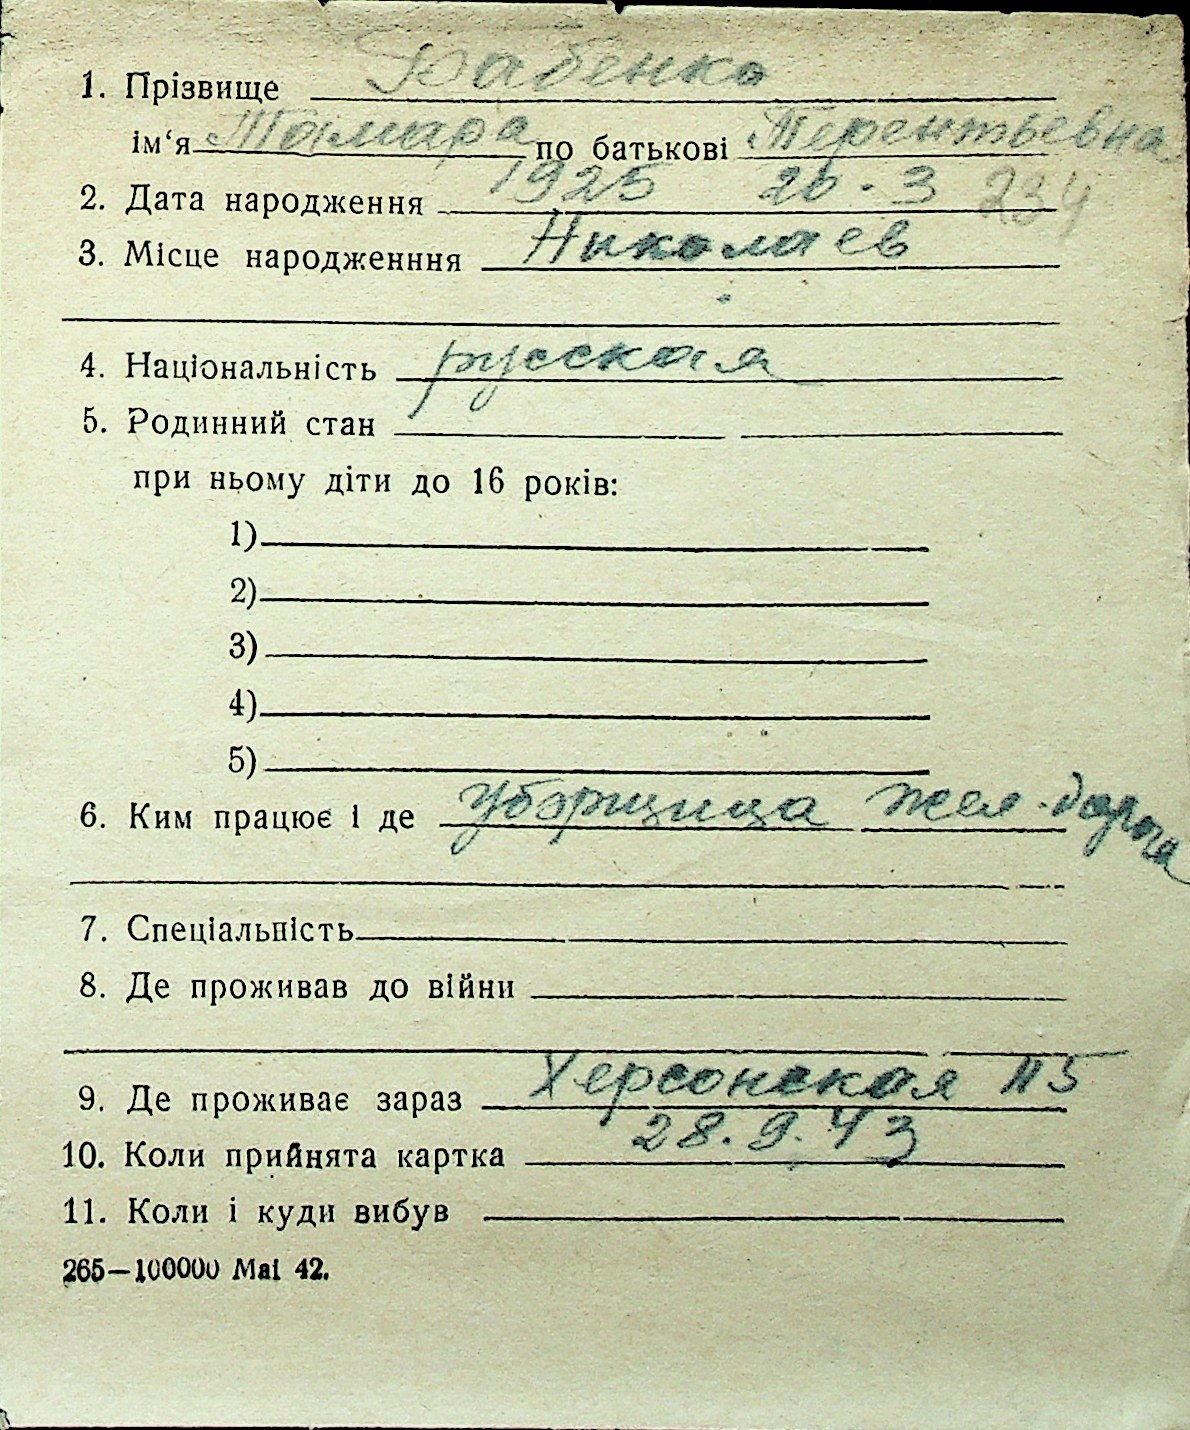 1. Прізвище Бабенко
ім‘я Тамара по батькові Терентьевна
2. Дата народження 1925 26.3 234
3. Місце народженння Николаев
4. Національність русская
5. Родинний стан
при ньому діти до 16 років:
1)
2)
3)
4)
5)
6. Ким працює і де уборщица жел. дорога
7. Спеціальність
8. Де проживав до війни
9. Де проживає зараз Херсонская 115
10. Коли прийнята картка 28.9.43
11. Коли і куди вибув
265—100000 Mai 42.